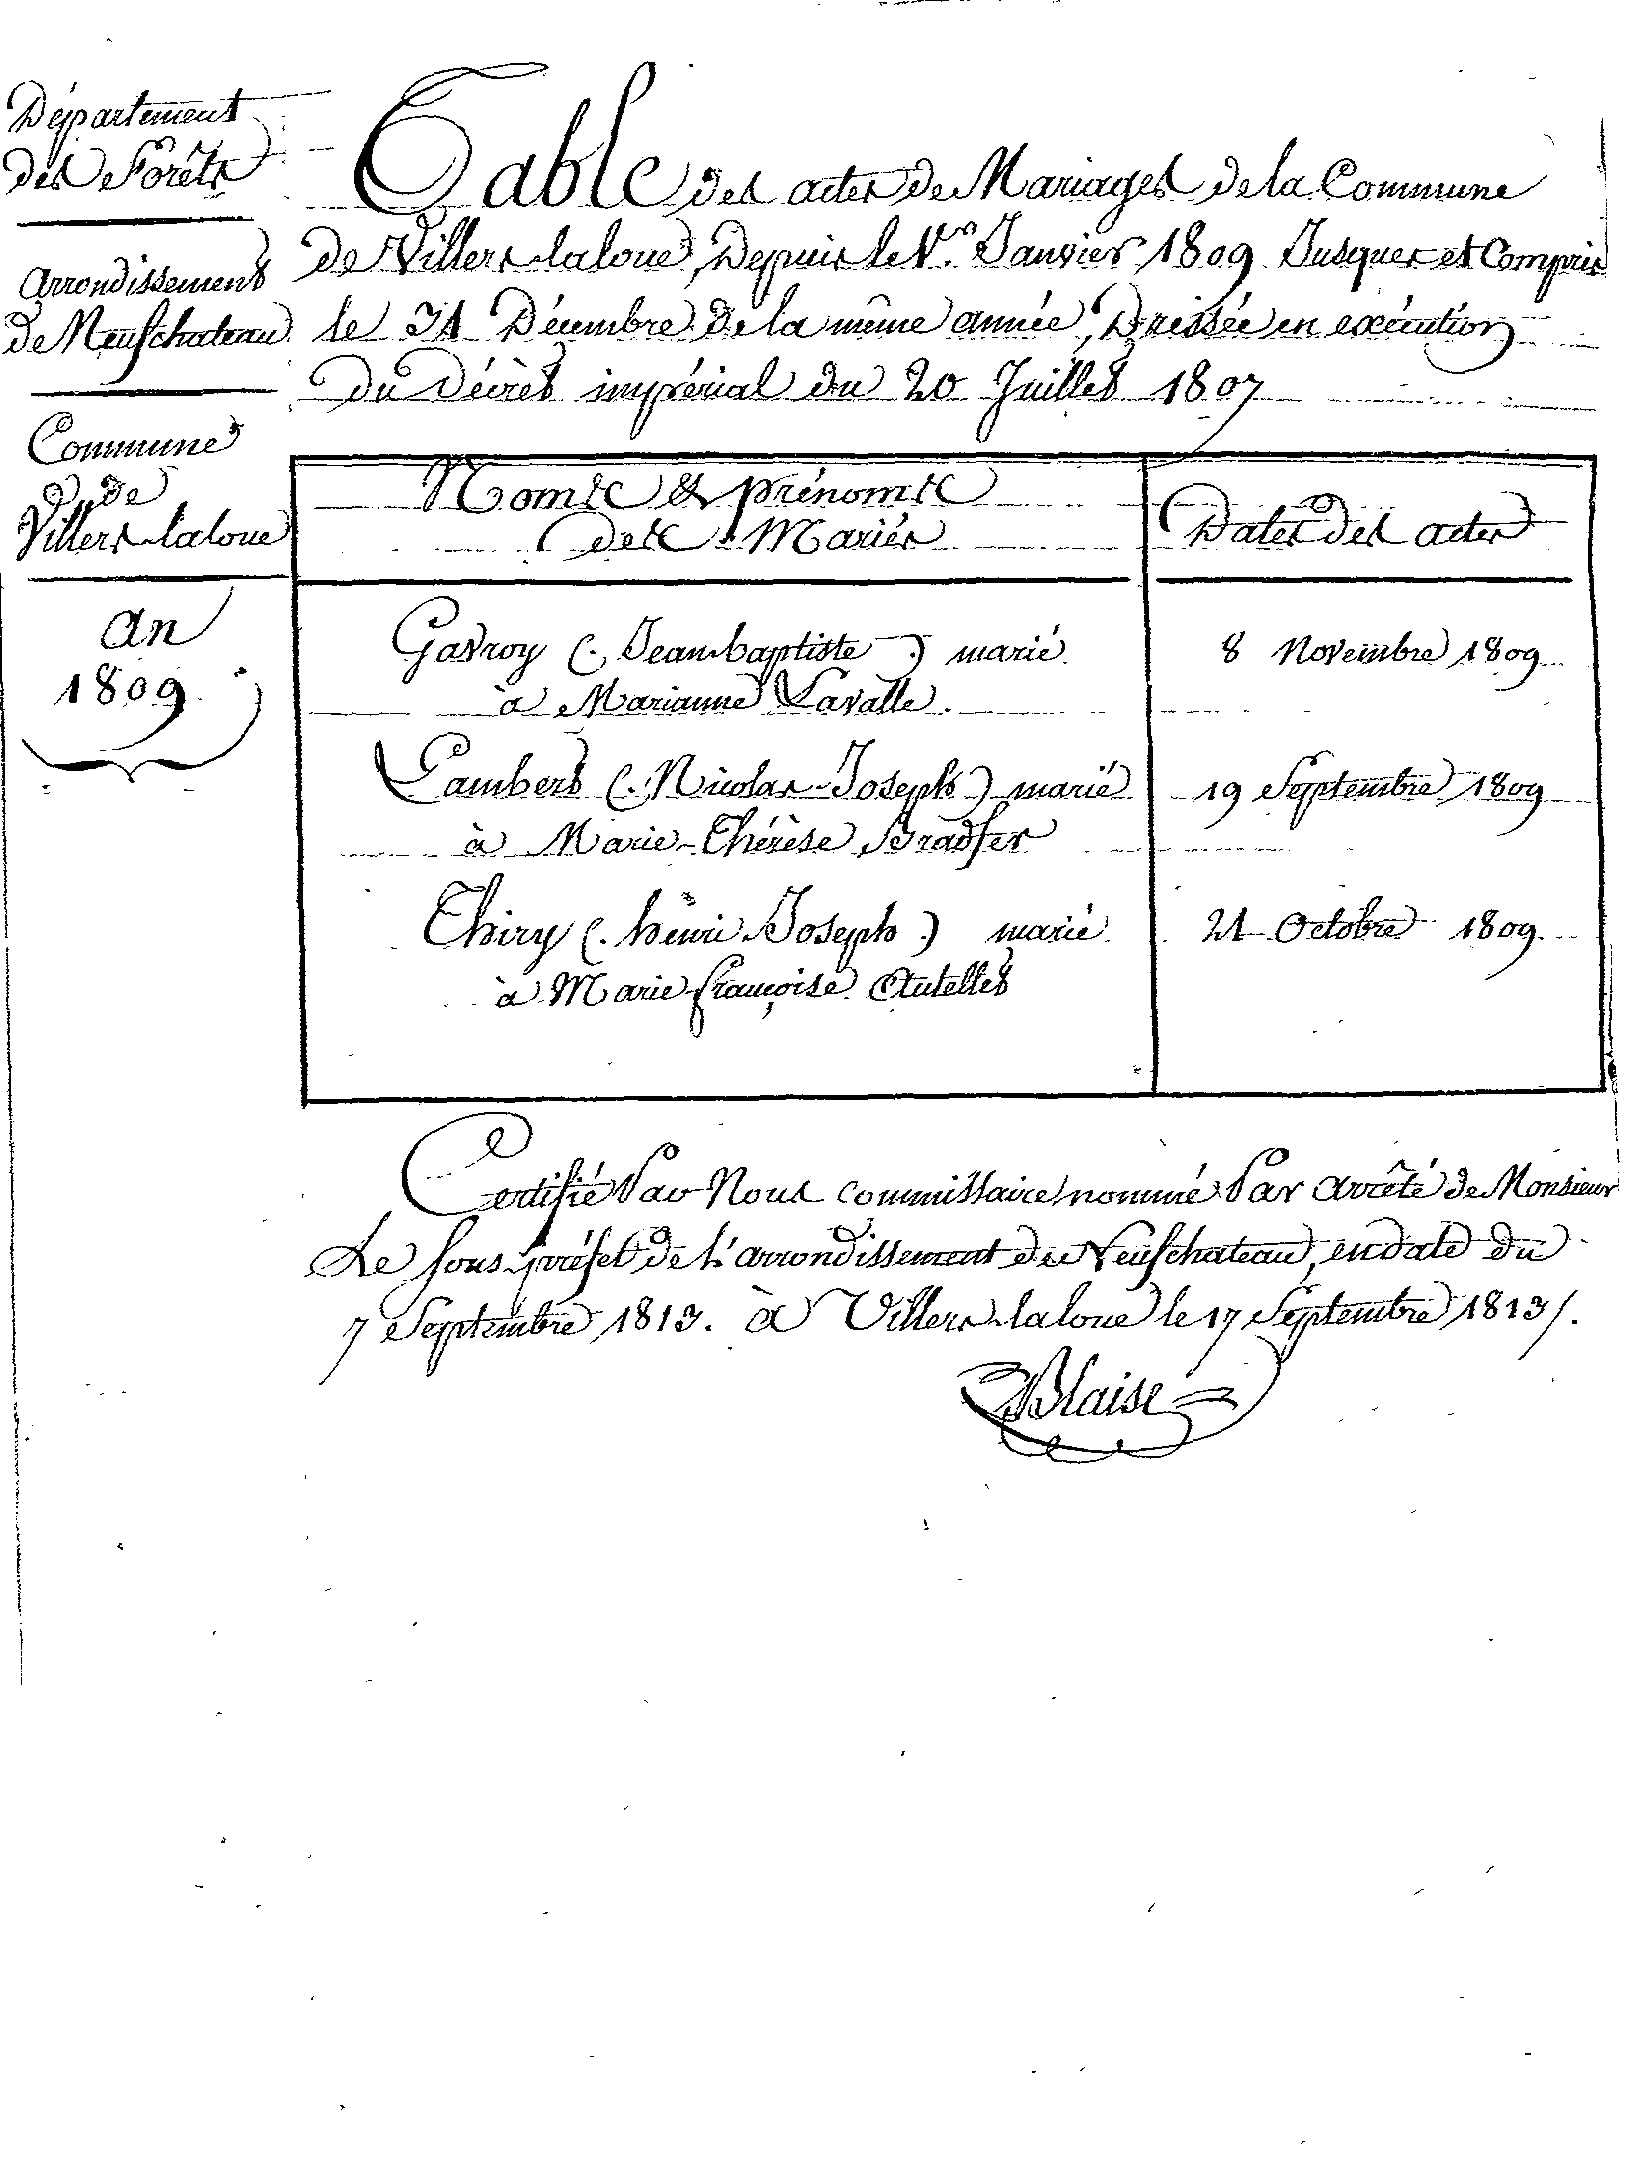 Département
des Forêts
arrondissement
de Neufchateau
Commune
de
Villers-laloue
an
1809
Table des actes de Mariages de la Commune
de Villers-laloue, Depuis le 1er Janvier 1809 Jusques et Compris
le 31 Décembre de la même année, Dressée en exécution
du Décret impérial du 20 Juillet 1807
Noms & prénoms
des Mariés
Dates des actes
Gavroy (. Jean-baptiste .) marié
à Marianne Lavalle.
8 Novembre 1809
Lambert (. Nicolas-Joseph) marié
à Marie-Thérèse Bradfer
19 Septembre 1809
Thiry (. henri Joseph .) marié
à Marie françoise
21 Octobre 1809.
Certifié Par Nous commissaire nommé Par arrêté de Monsieur
Le sous-préfet de l'arrondissement de Neufchateau, en date du
7 Septembre 1813. à Villers-laloue le 17 Septembre 1813/.
Blaise